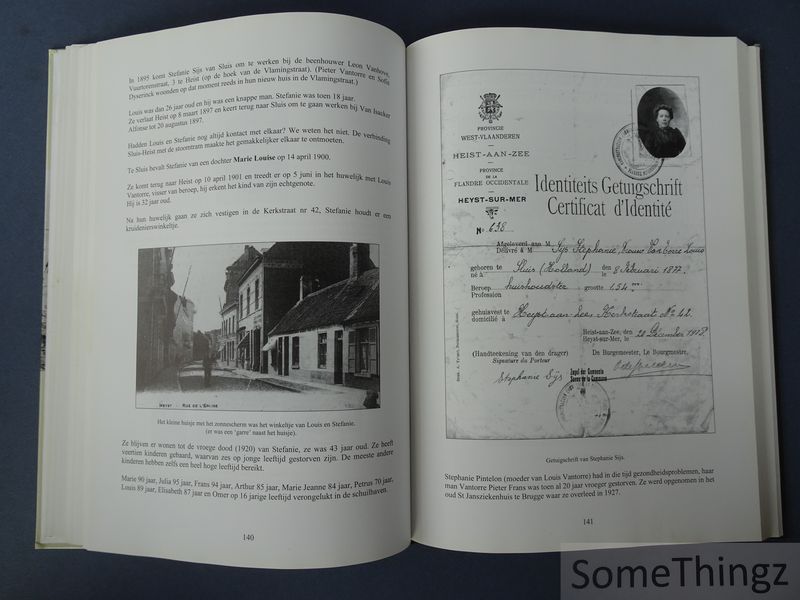 In 1895 komt Stefanie Sijs van Sluis om te werken bij de beenhouwer Leon Vanhove,
Vuurtorenstraat, 3 te Heist (op de hoek van de Vlamingstraat). (Pieter Vantorre en Sofie
Dyserinck woonden op dat moment reeds in hun nieuw huis in de Vlamingstraat.)
Louis was dan 26 jaar oud en hij was een knappe man. Stefanie was toen 18 jaar.
Ze verlaat Heist op 8 maart 1897 en keert terug naar Sluis om te gaan werken bij Van Isacker
Alfonse tot 20 augustus 1897.
Hadden Louis en Stefanie nog altijd contact met elkaar? We weten het niet. De verbinding
Sluis-Heist met de stoomtram maakte het gemakkelijker elkaar te ontmoeten.
Te Sluis bevalt Stefanie van een dochter Marie Louise op 14 april 1900.
Ze komt terug naar Heist op 10 april 1901 en treedt er op 5 juni in het huwelijk met Louis
Vantorre, visser van beroep, hij erkent het kind van zijn echtgenote.
Hij is 32 jaar oud.
Na hun huwelijk gaan ze zich vestigen in de Kerkstraat nr 42, Stefanie houdt er een
kruidenierswinkeltje.
HEYST - RUE DE L'EGLISE
Het kleine huisje met het zonnescherm was het winkeltje van Louis en Stefanie.
(er was een 'garre' naast het huisje).
Ze blijven er wonen tot de vroege dood (1920) van Stefanie, ze was 43 jaar oud. Ze heeft
veertien kinderen gebaard, waarvan zes op jonge leeftijd gestorven zijn. De meeste andere
kinderen hebben zelfs een heel hoge leeftijd bereikt.
Marie 90 jaar, Julia 95 jaar, Frans 94 jaar, Arthur 85 jaar, Marie Jeanne 84 jaar, Petrus 70 jaar,
Louis 89 jaar, Elisabeth 87 jaar en Omer op 16 jarige leeftijd verongelukt in de schuilhaven.
140
PROVINCIE
WEST-VLAANDEREN
HEIST-AAN-ZEE
PROVINCE
DE LA
FLANDRE OCCIDENTALE
HEYST-SUR-MER
Identiteits Getuigschrift
Certificat d'Identité
No 638
Afgeleverd aan M
Délivré à M
Sijs Stephanie, Vrouw Van Torre Louis
geboren te
né à
Sluis (Holland) den 8 Februari 1877.
le
Beroep
Profession
huishoudster grootte 1,54
gehuisvest te
domicilié à
Heyst-aan-Zee Kerkstraat No 42.
Heist-aan-Zee, den
Heyst-sur-Mer, le
20 December 1918.
(Handteekening van den drager)
Signature du Porteur
De Burgmeester, Le Bourgmestre,
Stephanie Sijs
Zegel der Gemeente
Sceau de la Commune
Getuigschrift van Stephanie Sijs.
Stephanie Pintelon (moeder van Louis Vantorre) had in die tijd gezondheidsproblemen, haar
man Vantorre Pieter Frans was toen al 20 jaar vroeger gestorven. Ze werd opgenomen in het
oud St Jansziekenhuis te Brugge waar ze overleed in 1927.
141
SomeThingz